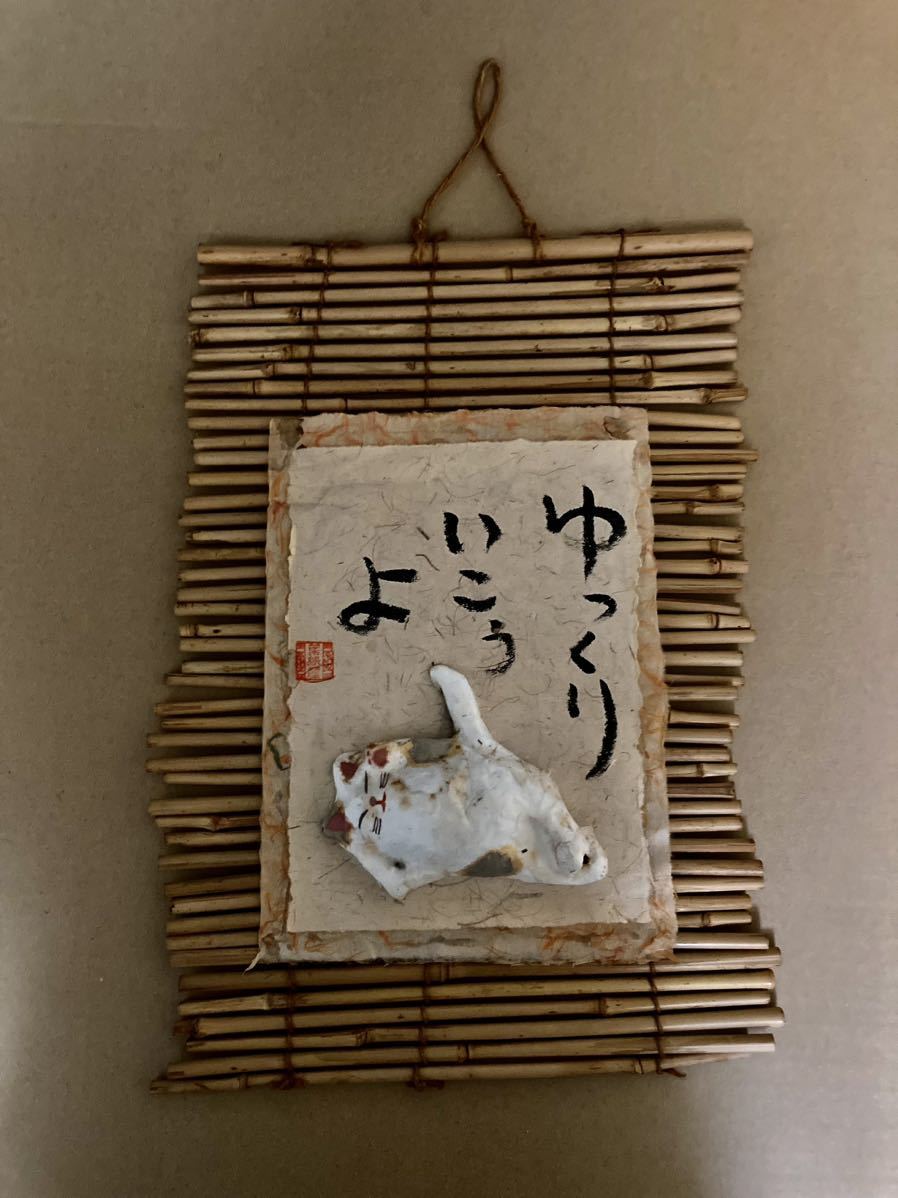 ゆっくり
いこう
よ